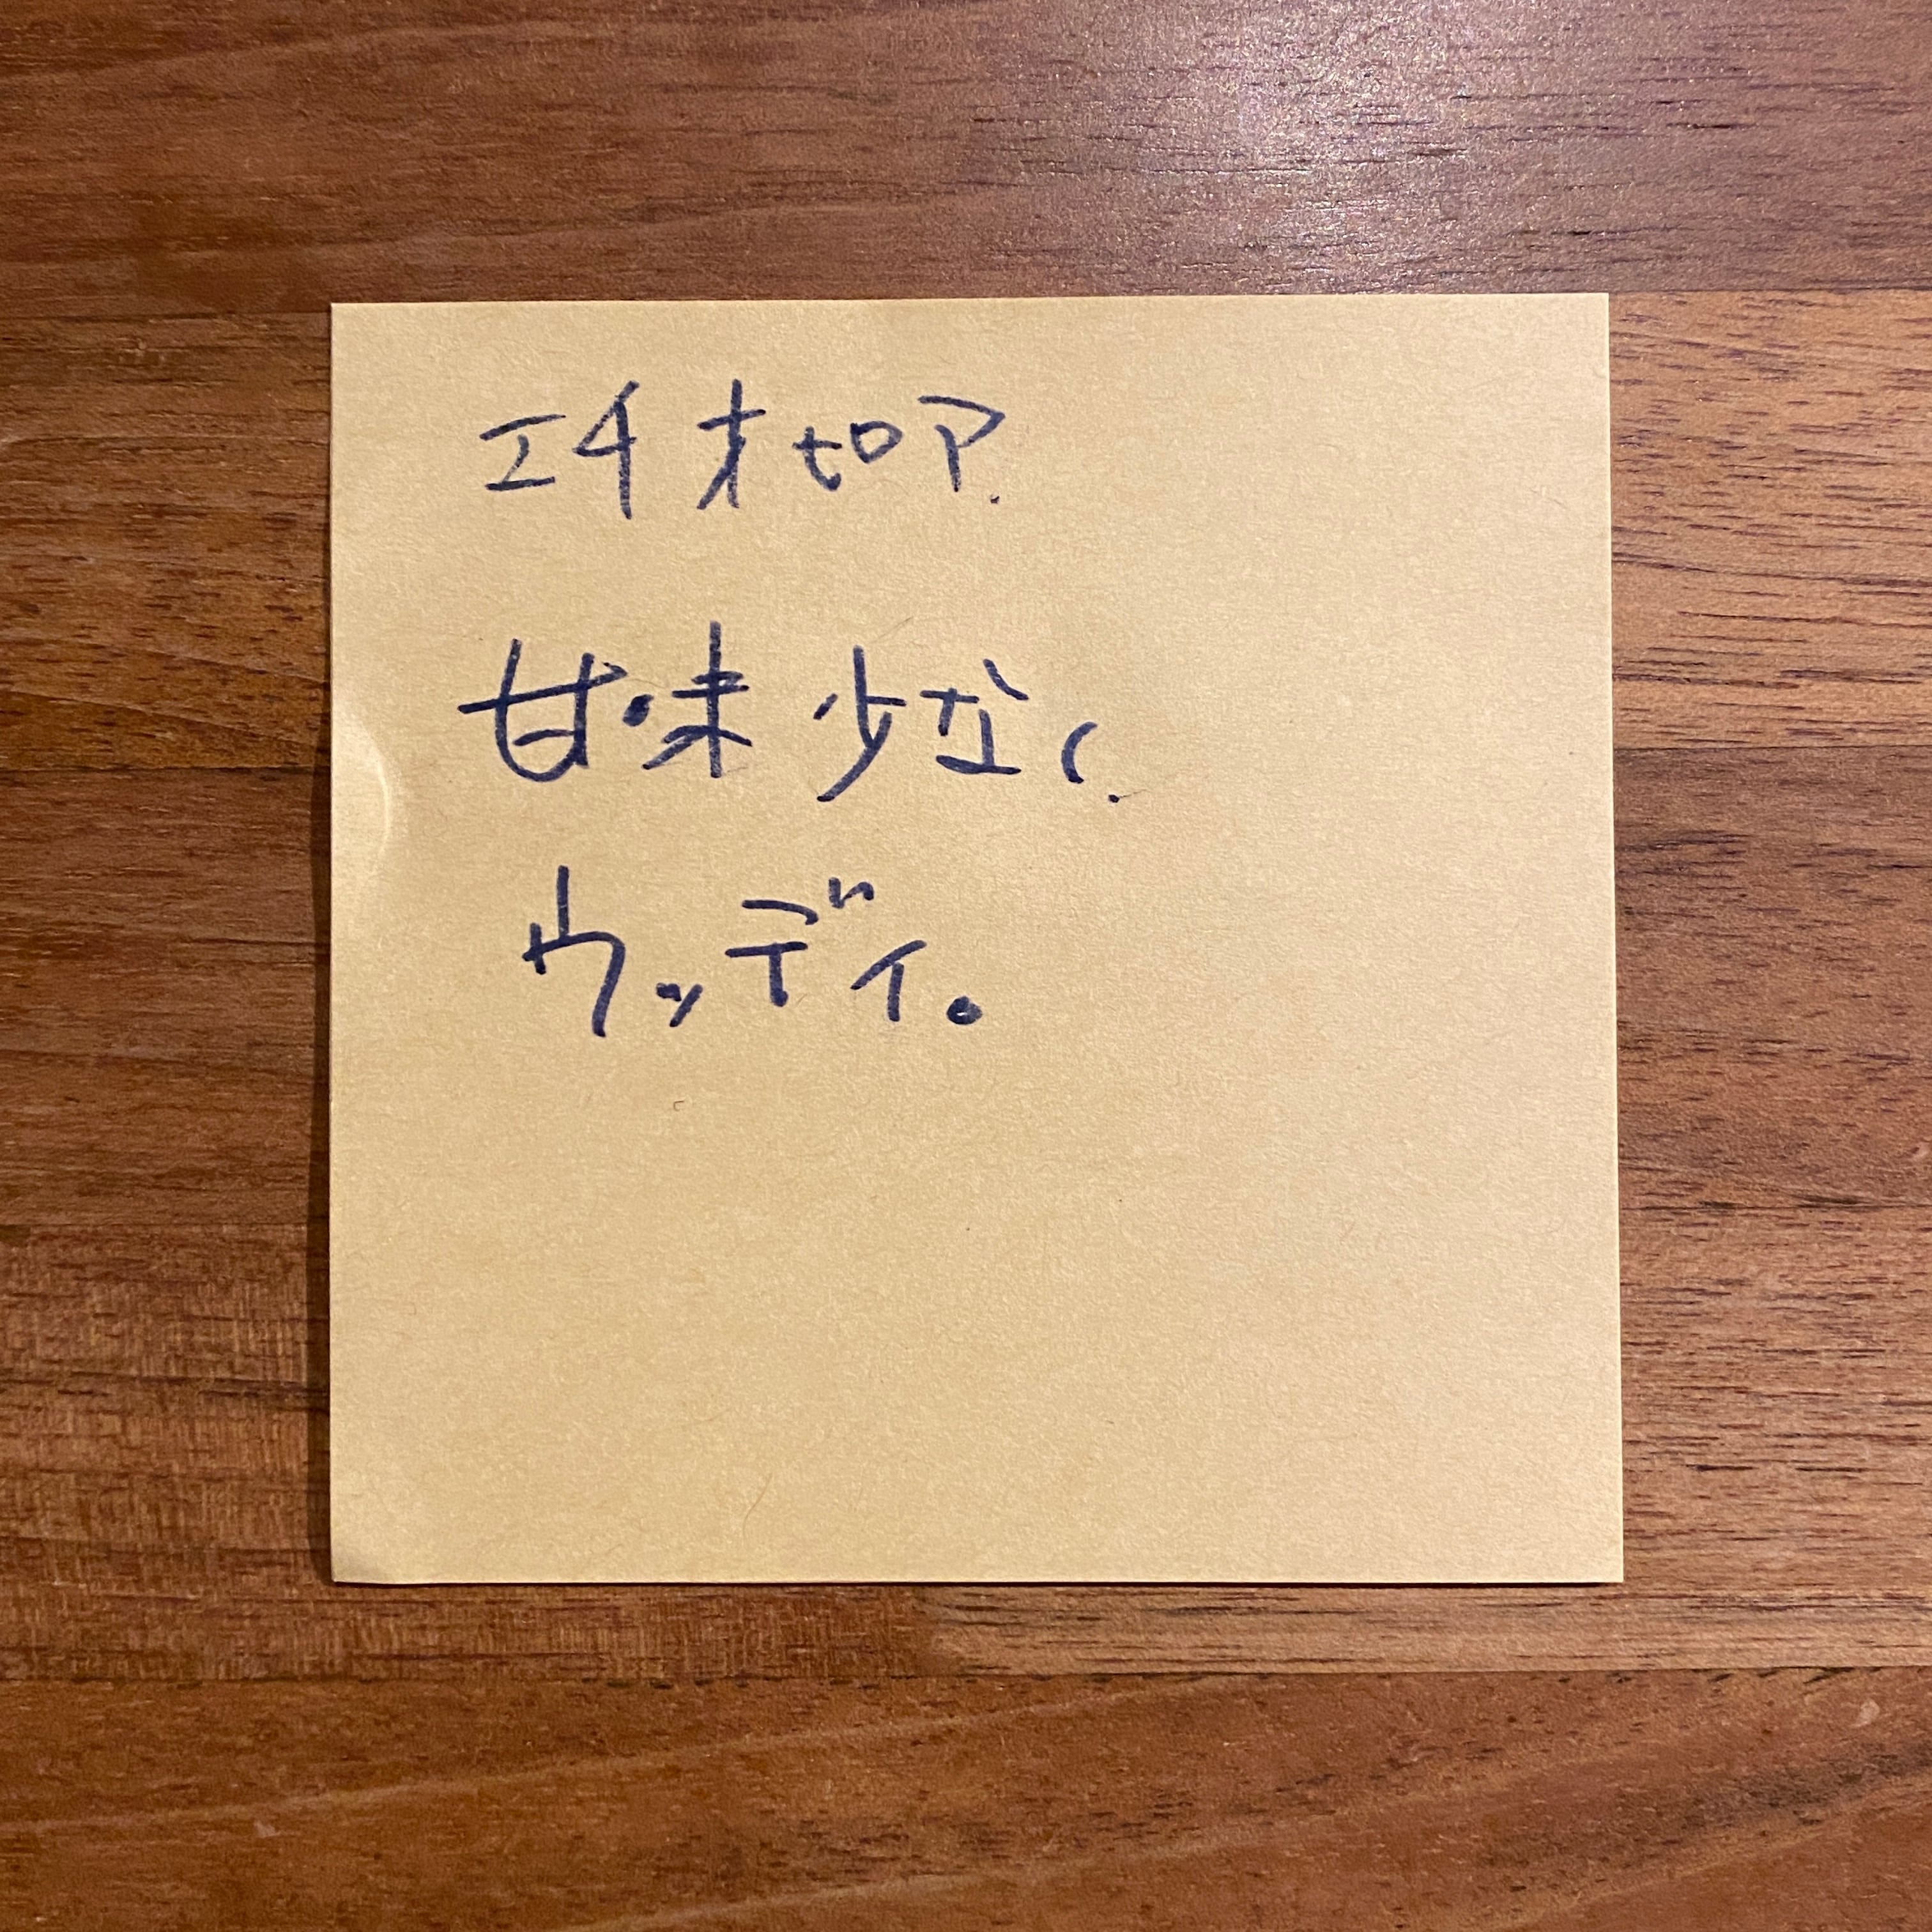 エチオセロア.
甘味少なく.
ウッディ。